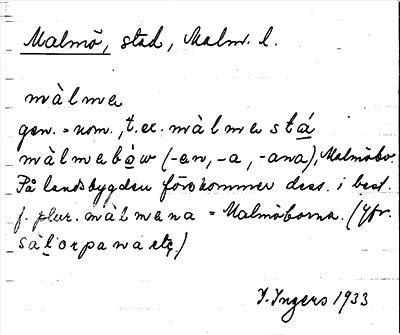 Malmö, stad, Malm. l.
màlme
gen. = nom., t. ex. màlme stá
màlmebàw (-en, -a, -ana), Malmöbo.
På landsbygden förekommer dess. i best.
f. plur. màlmena = Malmöborna. (Jfr.
sàtorpana etc.)
I. Ingers 1933